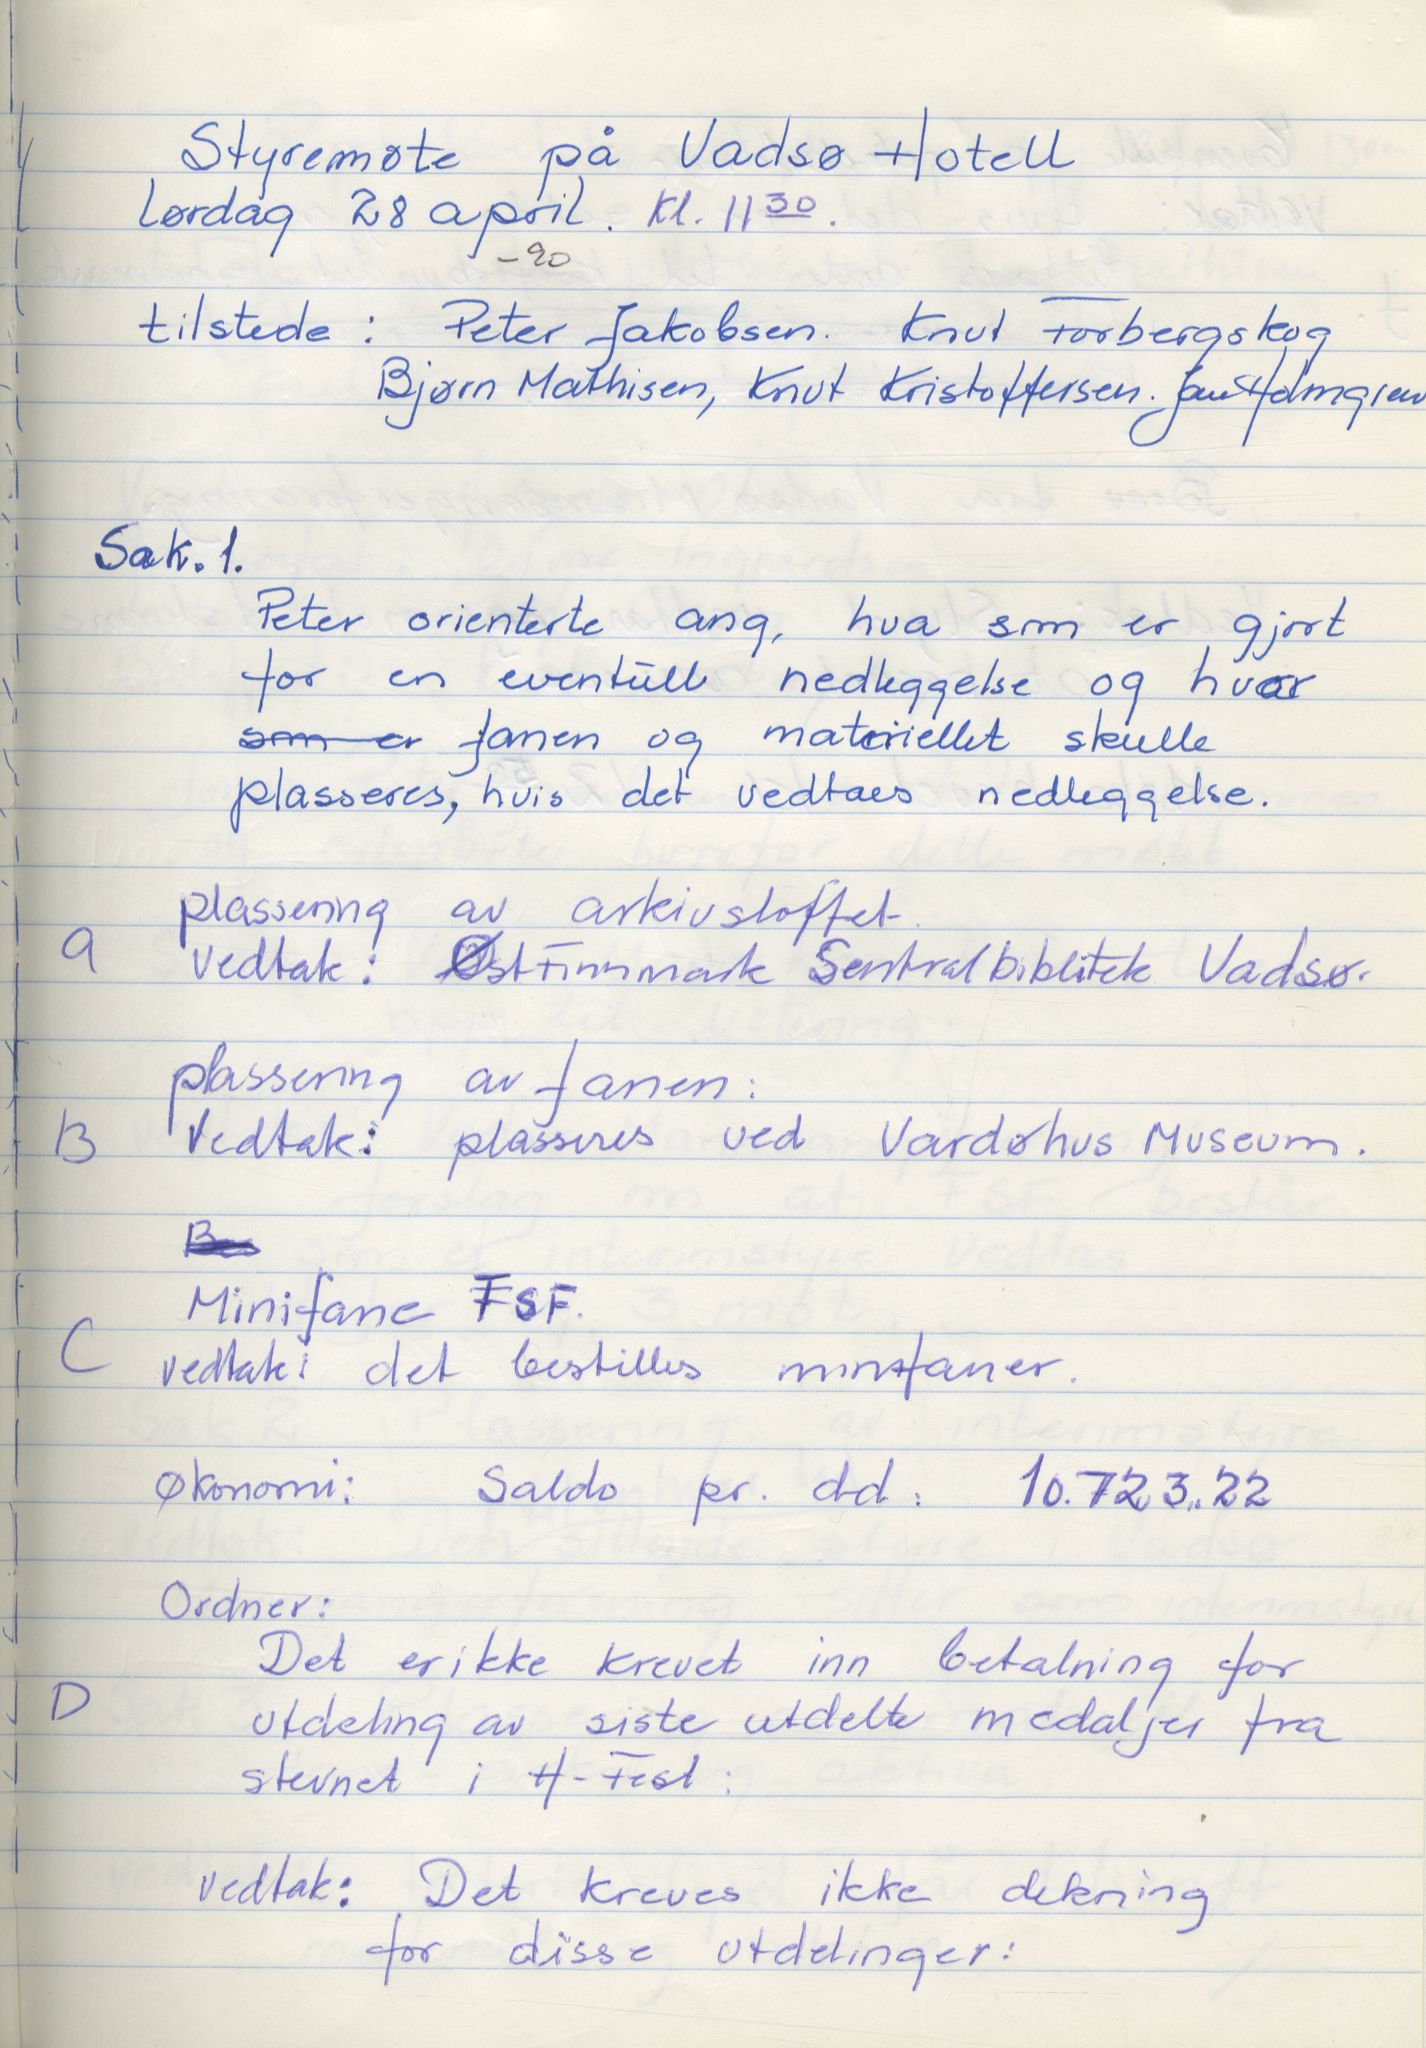 Styremøte på Vadsø Hotell
Lørdag 28 april. Kl. 11 30.
-90
tilstede: Peter Jakobsen. Knut Forbergskog
Bjørn Mathisen, Knut Kristoffersen. Jan Holmgren
Sak. 1.
Peter orienterte ang, hva som er gjort
for en eventuell nedleggelse og hvor
som er fanen og materiellet skulle
plasseres, hvis det vedtaes nedleggelse.
plassering av arkivstoffet.
a vedtak: ØstFinnmark Sentralbiblitek Vadsø.
plassering av fanen:
B Vedtak: plasseres ved Vardøhus Museum.
Minifane FSF.
C vedtak: det bestilles minifaner.
Økonomi: Saldo pr. dd: 10.723.22
Ordner:
Det er ikke krevet inn betalning for
D utdeling av siste utdelte medaljer fra
stevnet i H-Fest:
vedtak: Det kreves ikke dekning
for disse utdelinger: